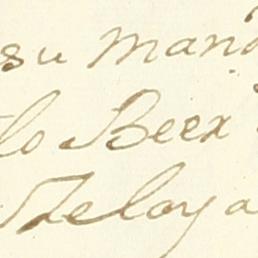 su mand
lo Beex
Zeloya